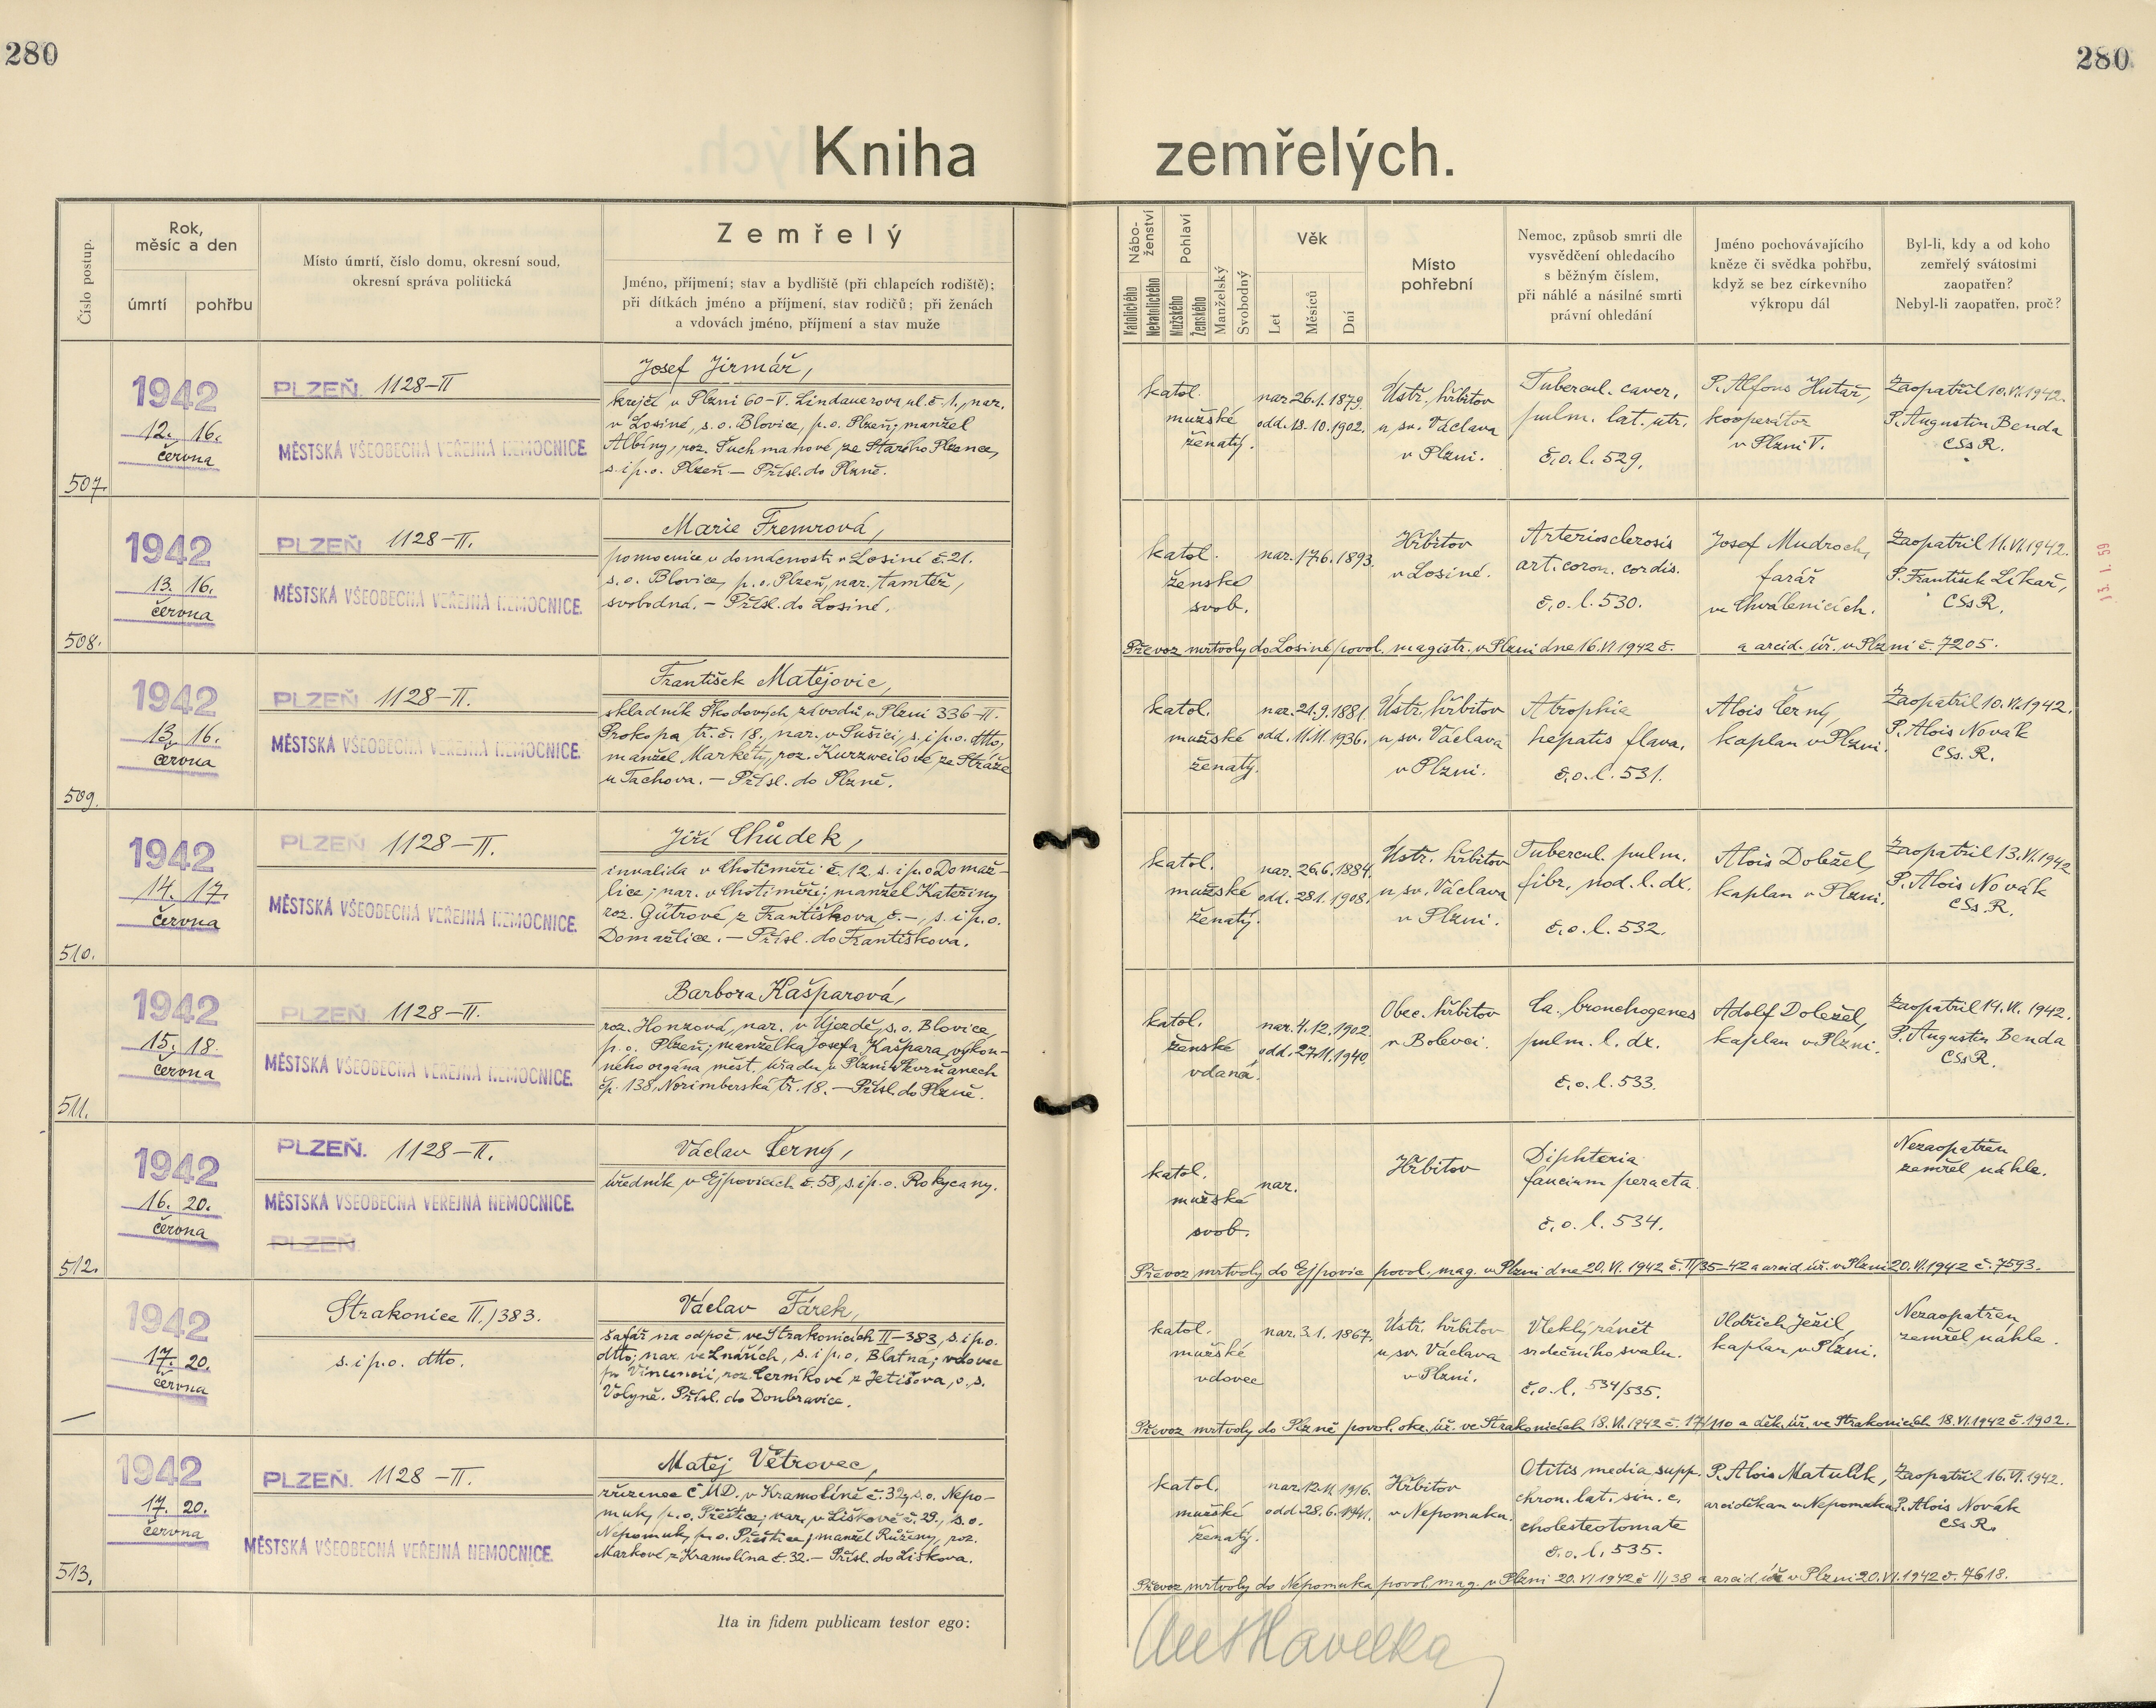 280
280
Kniha zemřelých.
Číslo postup.
Rok, měsíc a den
úmrtí
pohřbu
Místo úmrtí, číslo domu, okresní soud,
okresní správa politická
Zemřelý
Jméno, příjmení; stav a bydliště (při chlapcích rodiště);
při dítkách jméno a příjmení, stav rodičů; při ženách
a vdovách jméno, příjmení a stav muže
Nábo-
ženství
Katolického
Nekatolického
Pohlaví
Mužského
Ženského
Manželský
Svobodný
Věk
Let
Měsíců
Dní
Místo
pohřební
Nemoc, způsob smrti dle
vysvědčení ohledacího
s běžným číslem,
při náhlé a násilné smrti
právní ohledání
Jméno pochovávajícího
kněze či svědka pohřbu,
když se bez církevního
výkropu dál
Byl-li, kdy a od koho
zemřelý svátostmi
zaopatřen?
Nebyl-li zaopatřen, proč?
507.
1942
12. 16.
června
PLZEŇ. 1128–II
MĚSTSKÁ VŠEOBECNÁ VEŘEJNÁ NEMOCNICE.
Josef Jirmář,
krejčí v Plzni 60–V. Lindauerova ul. č. 1., nar.
v Losiné, s. o. Blovice, p. o. Plzeň; manžel
Albíny, roz. Tuchmanové ze Starého Plzence,
s. i p. o. Plzeň. – Přísl. do Plzně.
katol.
mužské
ženatý.
nar. 26.1.1879.
odd. 13.10.1902.
Ústř. hřbitov
u sv. Václava
v Plzni.
Tubercul. caver.
pulm. lat. utr.
č. o. l. 529.
P. Alfons Hutař,
kooperátor
v Plzni V.
Zaopatřil 10.VI.1942.
P. Augustin Benda
CSsR.
508.
1942
13. 16.
června
PLZEŇ 1128–II.
MĚSTSKÁ VŠEOBECNÁ VEŘEJNÁ NEMOCNICE.
Marie Fremrová,
pomocnice v domácnosti v Losiné č. 21.
s. o. Blovice, p. o. Plzeň, nar. tamtéž,
svobodná. – Přísl. do Losiné.
katol.
ženské
svob.
nar. 17.6.1893.
Hřbitov
v Losiné.
Arteriosclerosis
art. coron. cordis.
č. o. l. 530.
Josef Mudroch,
farář
ve Chválenicích.
Zaopatřil 11.VI.1942.
P. František Líkař,
CSsR.
Převoz mrtvoly do Losiné povol. magistr. v Plzni dne 16.VI.1942 č. a arcid. úř. v Plzni č. 7205.
509.
1942
13. 16.
června
PLZEŇ 1128–II.
MĚSTSKÁ VŠEOBECNÁ VEŘEJNÁ NEMOCNICE.
František Matějovic,
skladník Škodových závodů v Plzni 336–II.
Prokopa tř. č. 18., nar. v Sušici, s. i p. o. dtto,
manžel Markéty, roz. Kurzweilové ze Stráže
u Tachova. – Přísl. do Plzně.
katol.
mužské
ženatý.
nar. 21.9.1881.
odd. 11.11.1936.
Ústř. hřbitov
u sv. Václava
v Plzni.
Atrophia
hepatis flava.
č. o. l. 531.
Alois Černý,
kaplan v Plzni.
Zaopatřil 10.VI.1942.
P. Alois Novák
CSs.R.
510.
1942
14. 17.
června
PLZEŇ 1128–II.
MĚSTSKÁ VŠEOBECNÁ VEŘEJNÁ NEMOCNICE.
Jiří Chůdek,
invalida v Chotiměři č. 12, s. i p. o Domaž-
lice; nar. v Chotiměři; manžel Kateřiny
roz. Gütrové, z Františkova č. –, s. i p. o.
Domažlice. – Přísl. do Františkova.
katol.
mužské
ženatý.
nar. 26.6.1884.
odd. 28.1.1908.
Ústř. hřbitov
u sv. Václava
v Plzni.
Tubercul. pulm.
fibr. nod. l. dx.
č. o. l. 532.
Alois Doležel,
kaplan v Plzni.
Zaopatřil 13.VI.1942
P. Alois Novák
CSs.R.
511.
1942
15. 18.
června
PLZEŇ 1128–II.
MĚSTSKÁ VŠEOBECNÁ VEŘEJNÁ NEMOCNICE.
Barbora Kašparová,
roz. Honzová, nar. v Újezdě, s. o. Blovice,
p. o. Plzeň; manželka Josefa Kašpara, výkon-
ného orgána měst. úřadu v Plzni Skvrňanech
čp. 138, Norimberská tř. 18. – Přísl. do Plzně.
katol.
ženské
vdaná.
nar. 4.12.1902
odd. 27.11.1940.
Obec. hřbitov
v Bolevci.
Ca. bronchogenes
pulm. l. dx.
č. o. l. 533.
Adolf Doležel,
kaplan v Plzni.
Zaopatřil 14.VI.1942.
P. Augustin Benda
CSsR.
512.
1942
16. 20.
června
PLZEŇ. 1128–II.
MĚSTSKÁ VŠEOBECNÁ VEŘEJNÁ NEMOCNICE.
PLZEŇ.
Václav Černý,
úředník v Ejpovicích č. 58, s. i p. o. Rokycany.
katol.
mužské
svob.
nar.
Hřbitov
Diphteria
faucium peracta.
č. o. l. 534.
Nezaopatřen
zemřel náhle.
Převoz mrtvoly do Ejpovic povol. mag. v Plzni dne 20.VI.1942 č. II/35–42 a arcid. úř. v Plzni 20.VI.1942 č. 7593.
–
1942
17. 20.
června
Strakonice II./383.
s. i p. o. dtto.
Václav Fárek,
šafář na odpoč. ve Strakonicích II–383, s. i p. o.
dtto; nar. ve Lnářích, s. i p. o. Blatná; vdovec
po Vincencii, roz. Černíkové z Jetišova, o. s.
Volyně. Přísl. do Doubravice.
katol.
mužské
vdovec
nar. 3.1.1867.
Ústř. hřbitov
u sv. Václava
v Plzni.
Vleklý zánět
srdečního svalu.
č. o. l. 534/535.
Oldřich Ježil,
kaplan v Plzni.
Nezaopatřen,
zemřel náhle.
Převoz mrtvoly do Plzně povol. okr. úř. ve Strakonicích 18.VI.1942 č. 17/110 a děk. úř. ve Strakonicích 18.VI.1942 č. 1902.
513.
1942
17. 20.
června
PLZEŇ. 1128–II.
MĚSTSKÁ VŠEOBECNÁ VEŘEJNÁ NEMOCNICE.
Matěj Větrovec,
zřízenec ČMD. v Kramolíně č. 32, s. o. Nepo-
muk, p. o. Přeštice; nar. v Liškově č. 29., s. o.
Nepomuk, p. o. Přeštice; manžel Růženy, roz.
Markové z Kramolína č. 32. – Přísl. do Liškova.
katol.
mužské
ženatý.
nar. 12.11.1916.
odd. 28.6.1941.
Hřbitov
v Nepomuku.
Otitis media supp.
chron. lat. sin. c.
cholesteotomate
č. o. l. 535.
P. Alois Matulík,
arciděkan v Nepomuku.
Zaopatřil 16.VI.1942.
P. Alois Novák
CSsR.
Převoz mrtvoly do Nepomuka povol. mag. v Plzni 20.VI.1942 č. II/38 a arcid. úř. v Plzni 20.VI.1942 č. 7618.
Ita in fidem publicam testor ego:
Havelka